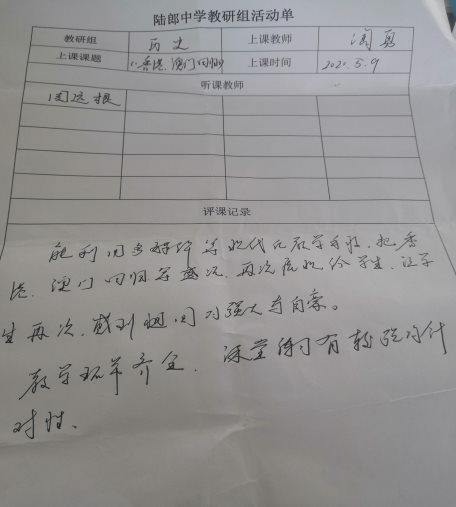 陆郎中学教研组活动单
教研组 历史 上课教师 勇
上课课题 香港、澳门回归 上课时间 2020.5.9
听课教师
周远根
评课记录
能利用多媒体等现代化教学手段，把香
港、澳门回归等盛况，再次展现给学生，让学
生再次，感到祖国的强大与自豪。
教学环节齐全，课堂练习有较强的针
对性、